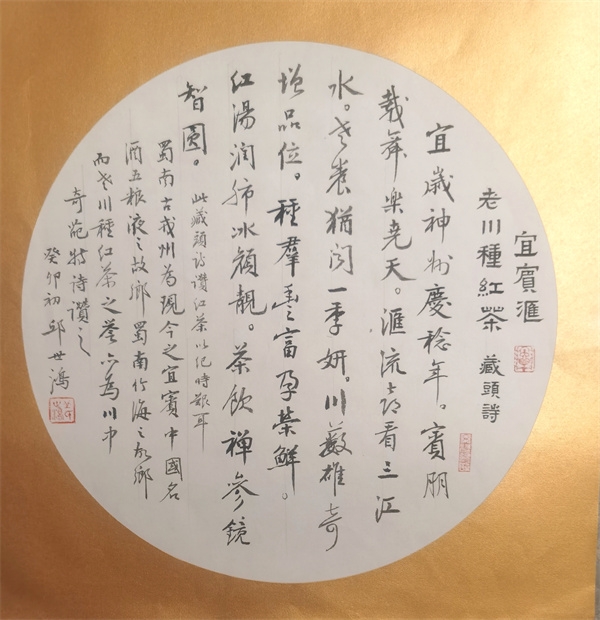 宜賓滙
老川種紅茶 藏頭詩
宜歲神州慶稔年。賓朋
載舞樂堯天。滙流喜看三江
水。老猶閱一季妍。川藪雄奇
增品位。種羣豐富孕榮鮮。
紅湯潤肺冰顏靚。茶飲禪參鏡
智圓。
此藏頭詩讚紅茶以纪時艱耳
蜀南古戎州為現今之宜賓中國名
酒五粮液之故鄉蜀南竹海之故鄉
而老川種紅茶之譽亦為川中
奇葩特詩讚之
癸卯初 邱世鴻